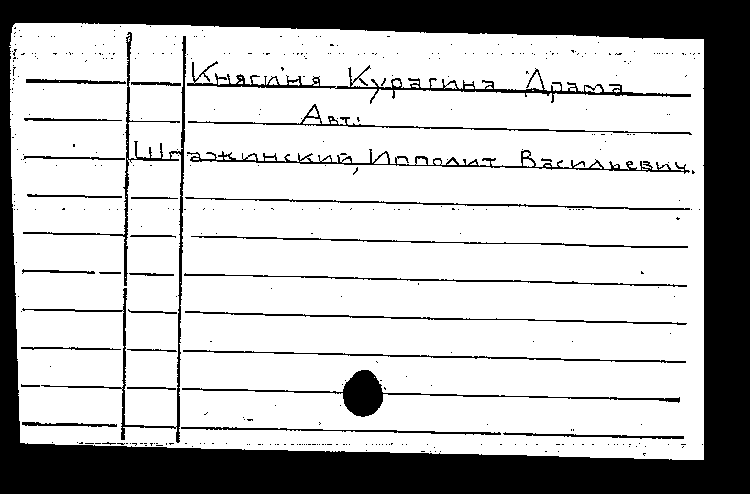 Княгиня Курагина Драма
Авт:
Шпажинский, Ипполит Васильевич.